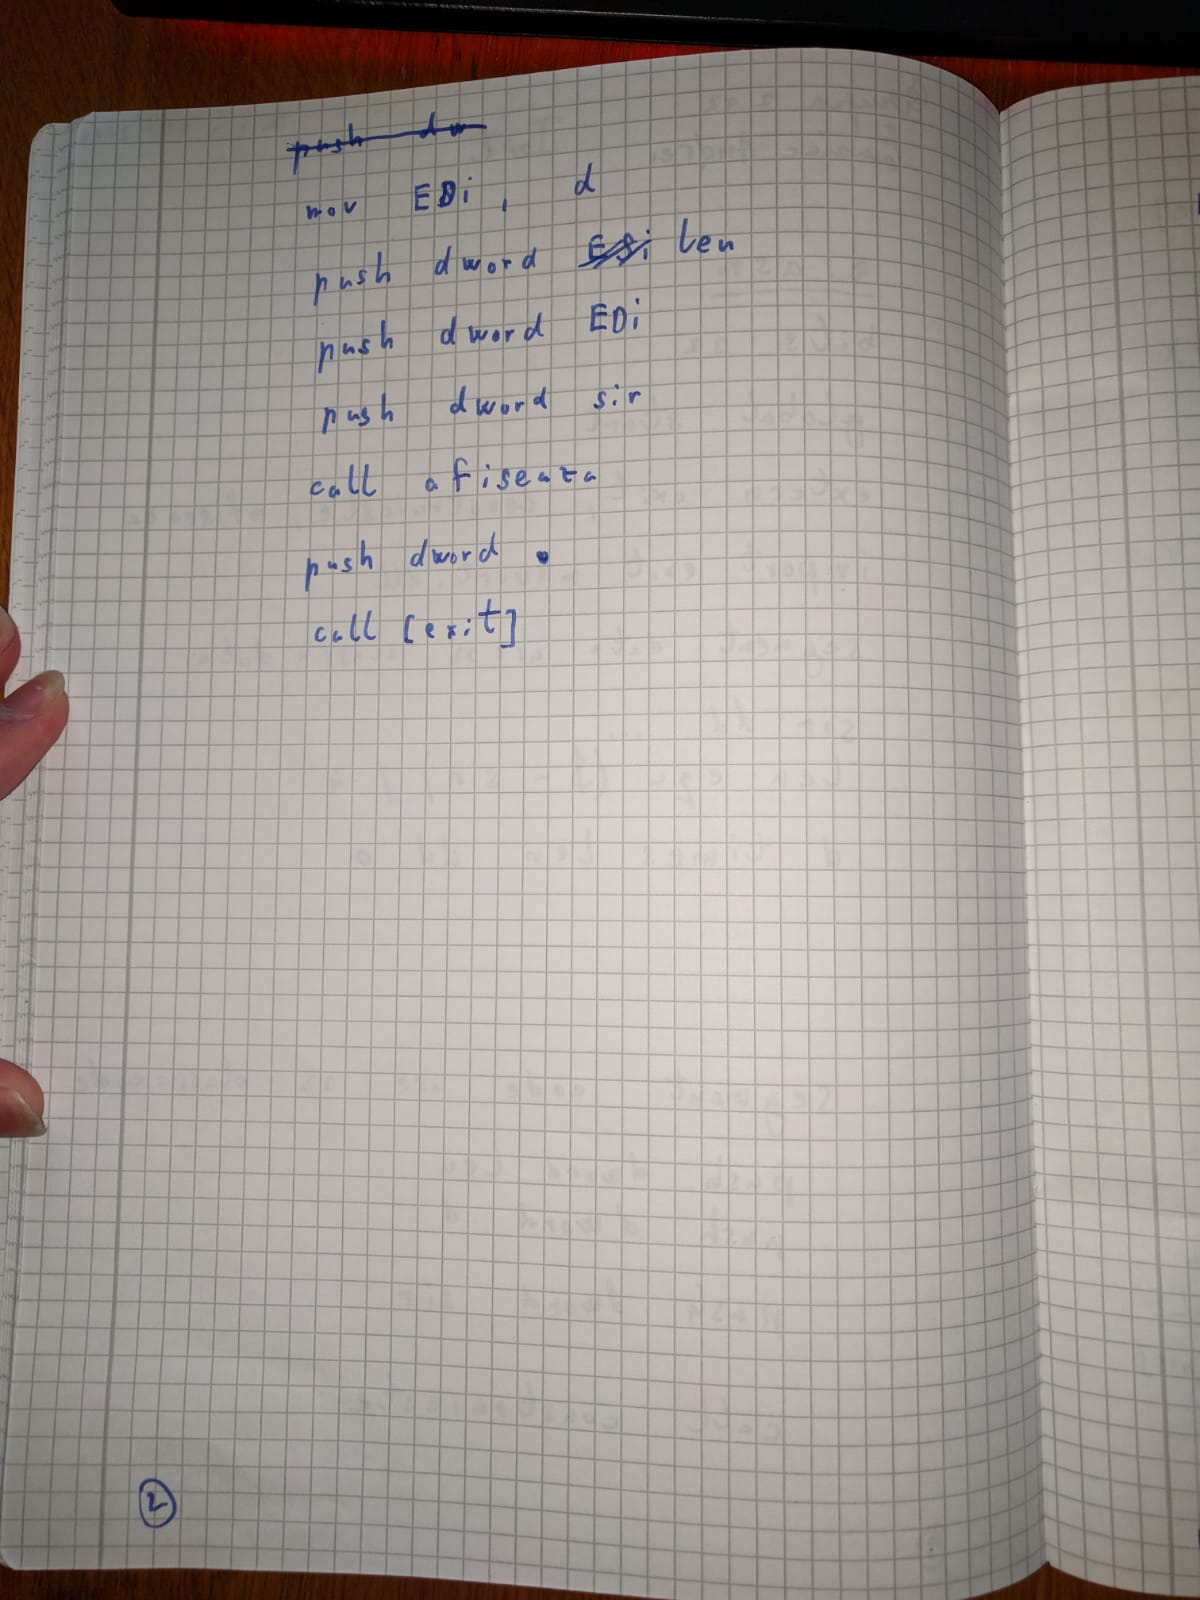 mov EDi, d
push dword len
push dword EDi
push dword sir
call afiseaza
push dword
call [exit]
2